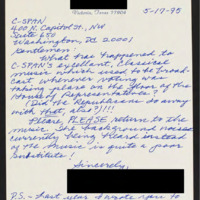 Victoria, Texas 77904
5-17-95
C-SPAN
400 N. Capitol St., NW
Suite 650
Washington, DC 20001
Gentlemen:
What has happened to
C-SPAN's excellent, Classical
music which used to be broad-
cast whenever voting was
taking place on the floor of the
House of Representatives?
(Did the Republicans do away
with that, also?)!!!
Please, PLEASE return to the
music. The background noises
currently being used instead
of the music is quite a poor
substitute!
Sincerely,
P.S. - Last year I wrote you to